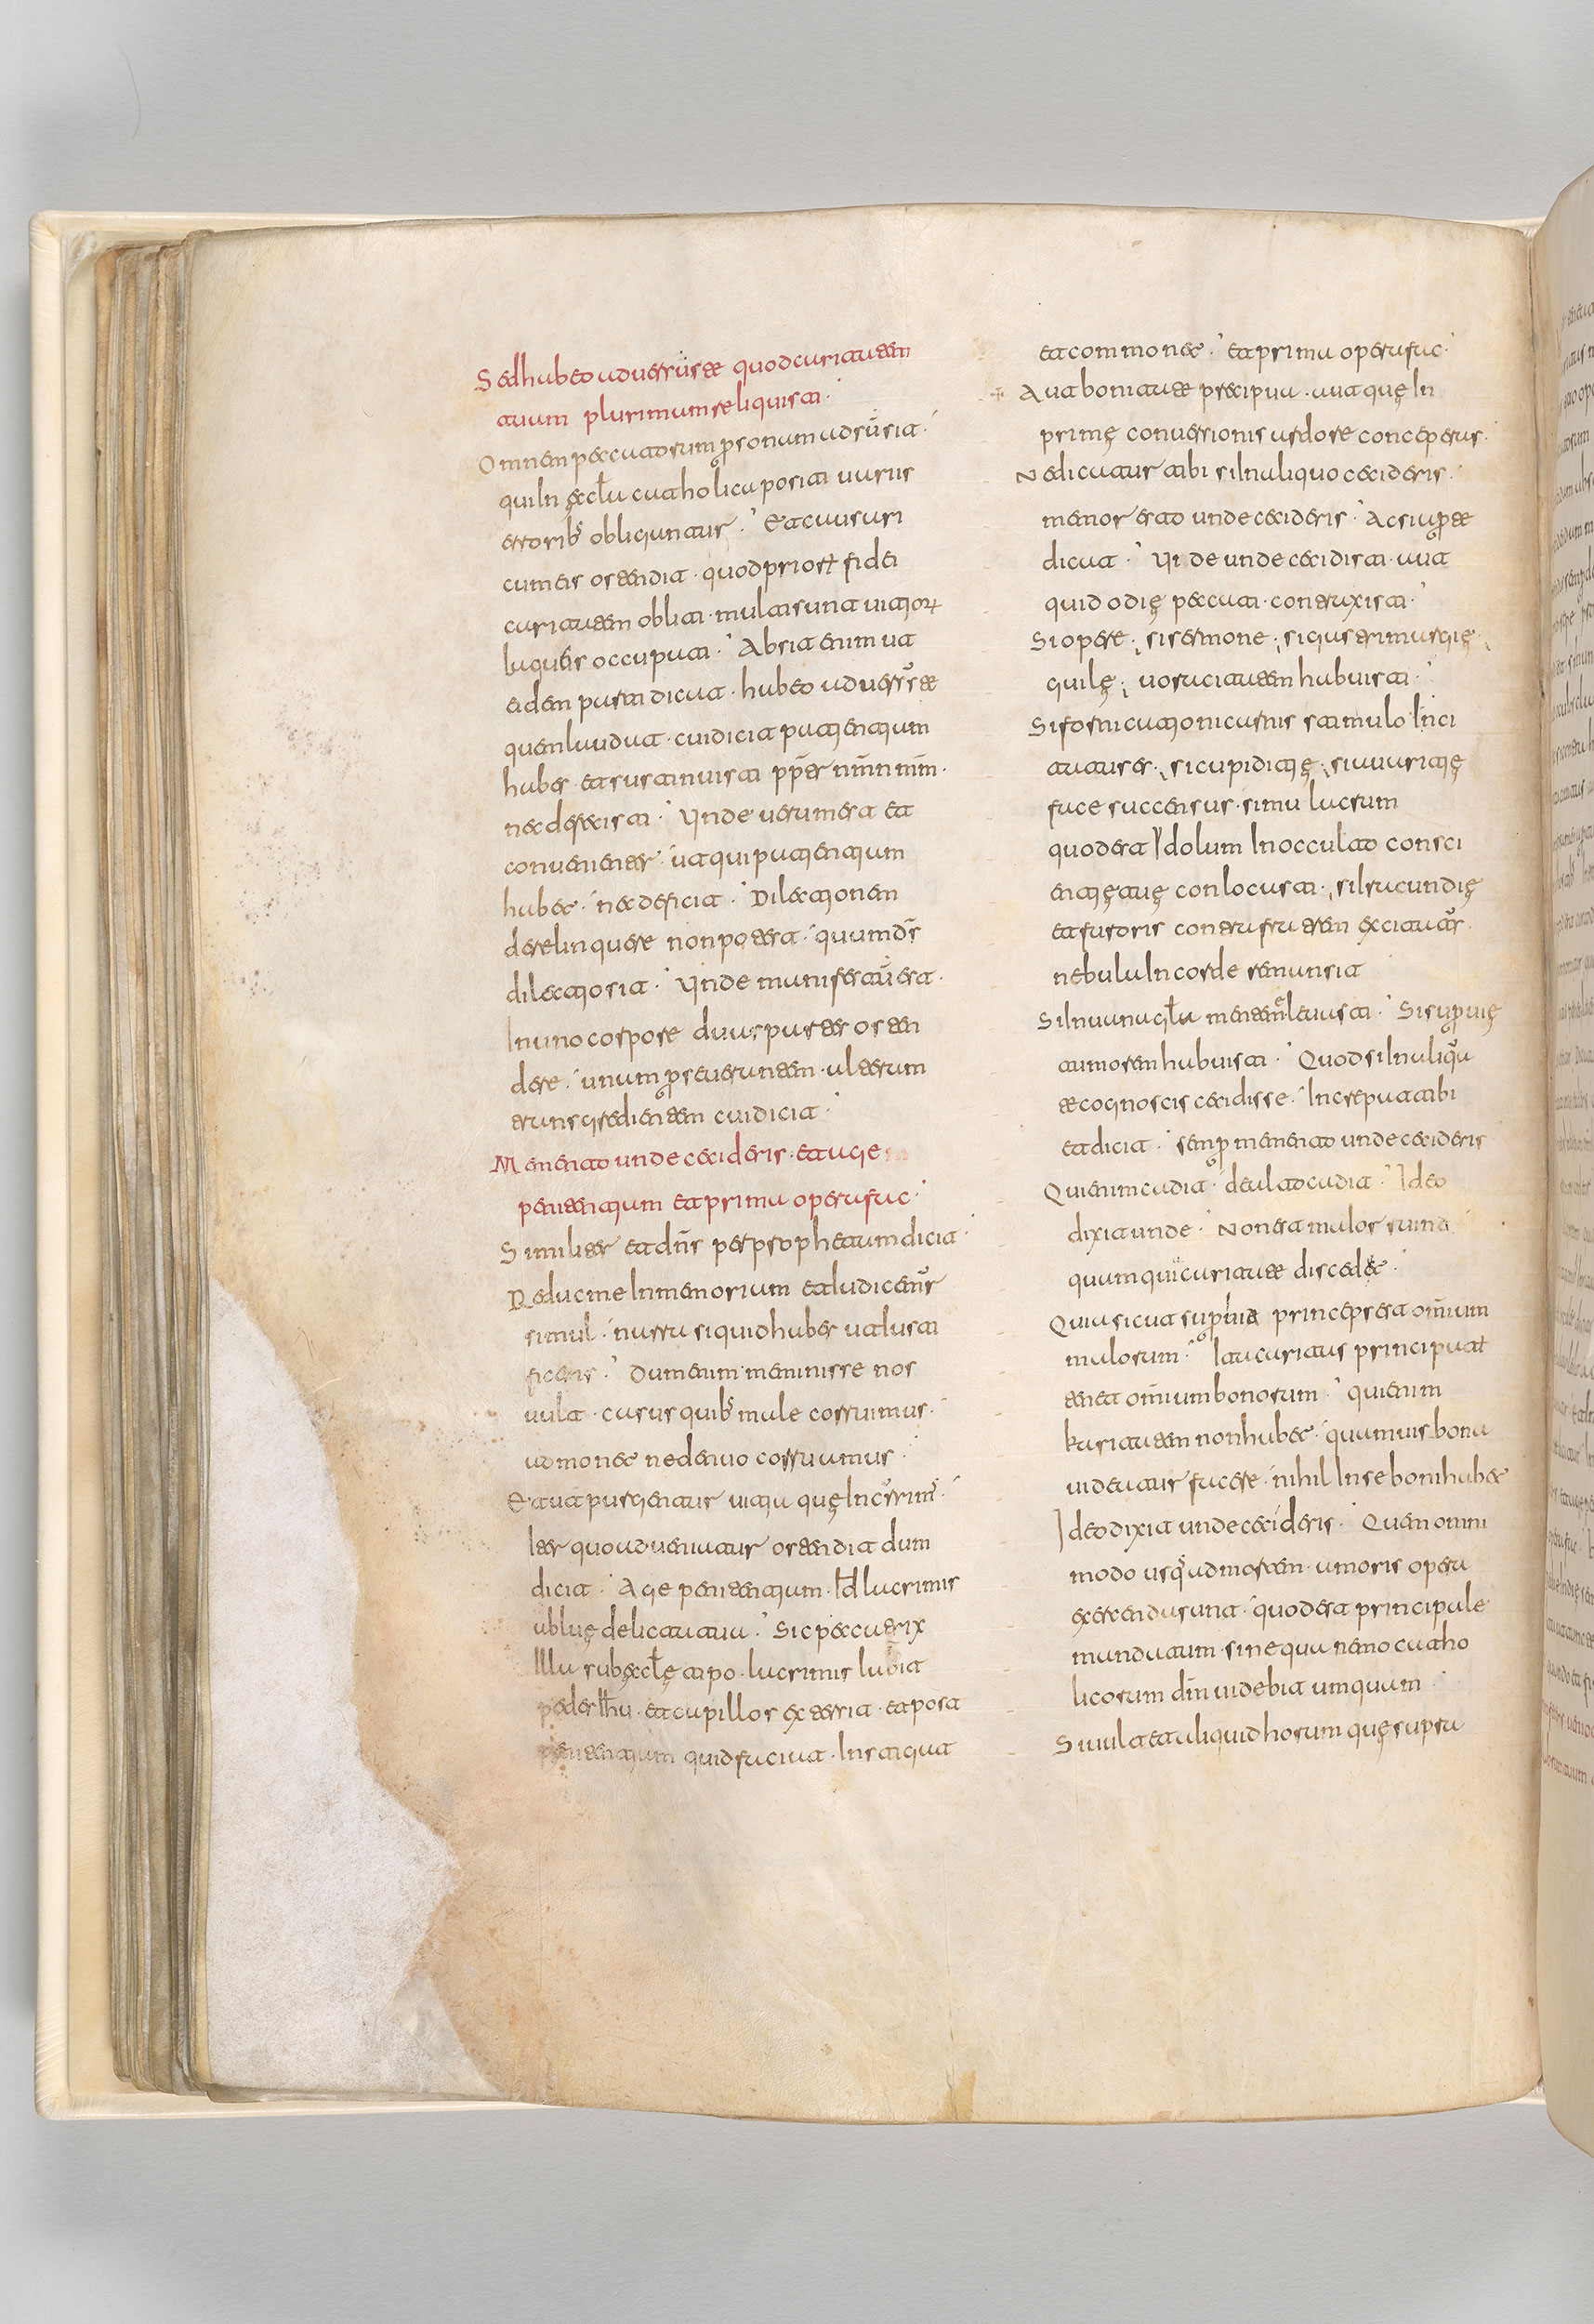 Sed habeo aduersus te quod caritatem
tuam plurimum reliquisti.
Omnem peccatorum personam adsūsit.
qui In ęcłā catholica positi uariis
errorib; obligantur. Et causari
cum eis ostendit. quod priorē fidei
caritatem obliti. multis sunt uitior̄
laqueis occupati. Absit enim ut
eidem parti dicat. habeo aduersus te
quem laudat. cui dicit patientiam
habes et sustinuisti pp̄ter nm̄n mm̄.
nec defecisti. Unde uerum est et
conueniens. ut qui patientiam
habet. nec deficit. Dilectionem
derelinquere non potest. quam ds̄
dilectio sit. Unde manifestū est.
In uno corpore duas partes osten
dere. unum perseuerantem. alterum
transgredientem cui dicit.
Memento unde cecideris. et age
penitentiam et prima opera fac.
Similiter et dn̄s per prophetam dicit.
Reduc me In memoriam et Iudicemur
simul. narra si quid habes ut Iusti
ficeris. Dum enim meminisse nos
uult. casus quib; male corruimus.
admonet ne denuo corruamus.
Et ut purgentur uitia quę Incurrims.
Iter quo adueniatur ostendit dum
dicit. Age penitentiam. Id lacrimis
abluę delicta tua. Sic peccatrix
Illa sub ęcłę tipo. lacrimis labit
pedes Ihu. et capillos extersit. et post
penitentiam quid faciat. Instigat
et commonet. et prima opera fac.
Aut bonitate precipua. aut quę In
primę conuersionis ardore conceperas.
Ne dicatur tibi si In aliquo cecideris.
memor esto unde cecideris. Ac si aperte
dicat. Uide unde cecidisti. aut
quid odię peccati contraxisti.
Si opere. si sermone. si gastrimargię.
guilę. uoracitatem habuisti.
Si fornicationi carnis stimulo Inci
tatus es. si cupiditię. si auaritię
face succensus. simulacrum
quod est Idolum In occulto consci
entiętuę conlocasti. si Iracundię
et furoris contra fratrem excitatus.
nebula In corde remansit
Si In uana głā mentem eleuasti. Si superuię
tumorem habuisti. Quod si In aliqua
te cognoscis cecidisse. Increpat tibi
et dicit. semper memento unde cecideris
Qui enim cadit. de alto cadit. Ideo
dixit unde. Non est malos ruina
quam qui a caritate discedet.
Quia sicut superuia princeps est om̄ium
malorum. Ita caritas principatū
tenet om̄ium bonorum. qui enim
karitatem non habet. quamuis bona
uideatur facere. nihil In se boni habet
Ideo dixit unde cecideris. Quem omni
modo usq; ad mortem. amoris opera
exercenda sunt. quod est principale
mandatum. sine qua nemo catho
licorum dm̄ uidebit umquam
Si uult et aliquid horum quę supra